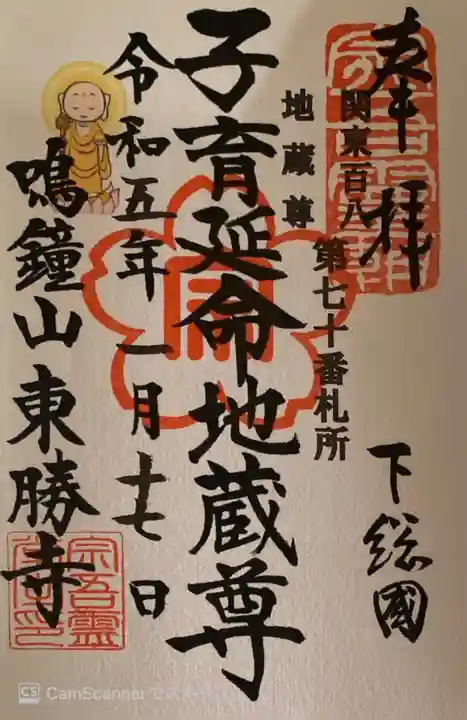 奉拝
下総國
関東百八
地蔵尊
第七十番札所
子育延命地蔵尊
令和五年一月十七日
鳴鐘山東勝寺
宗吾霊
CS CamScanner